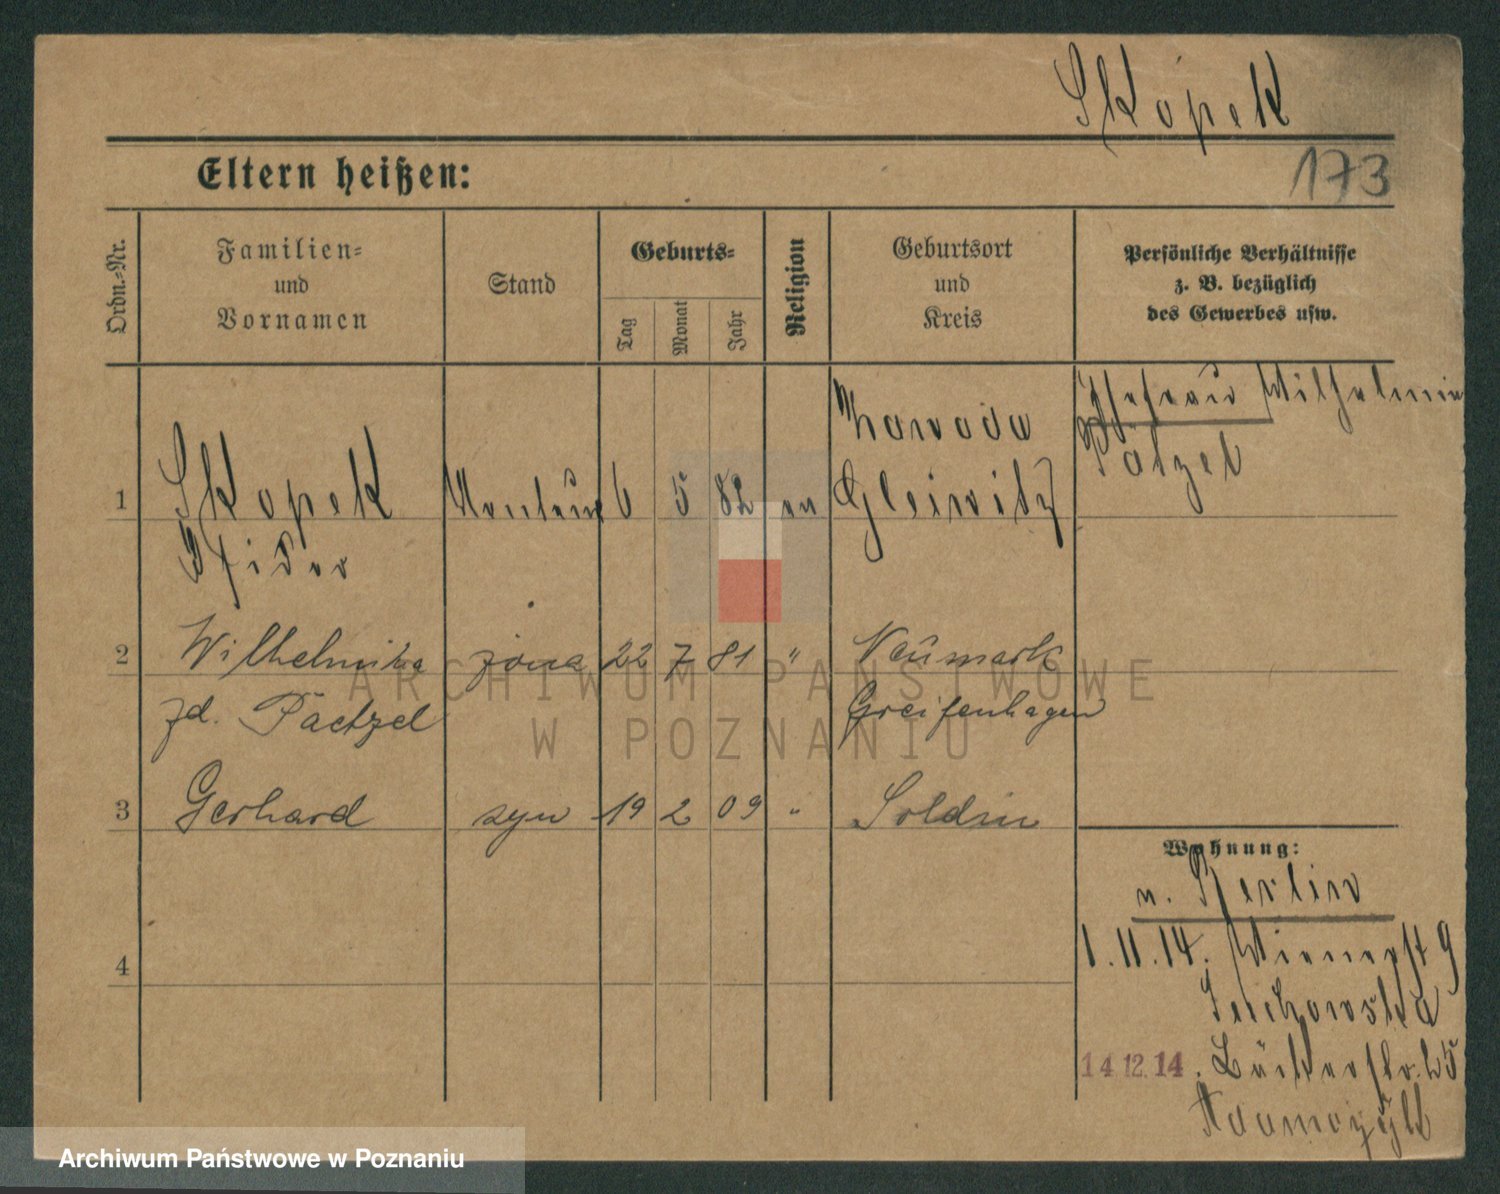 Skopek
173
Eltern heißen:
Ordn.-Nr.
Familien-
und
Vornamen
Stand
Geburts-
Tag
Monat
Jahr
Religion
Geburtsort
und
Kreis
Persönliche Verhältnisse
z. B. bezüglich
des Gewerbes usw.
Ehefrau Wilhelmine
Pätzel
1 Skopek 6 5 82 ev Zawada
Gleiwitz
Isidor
2 Wilhelmina żona 22 7 81 " Neumark
zd. Paetzel Greifenhagen
3 Gerhard syn 19 2 09 " Soldin
4
Wohnung:
v. Berlin
1.11.14. Wienerst 9
14.12.14. Bäckerstr. 25
ARCHIWUM PAŃSTWOWE
W POZNANIU
Archiwum Państwowe w Poznaniu